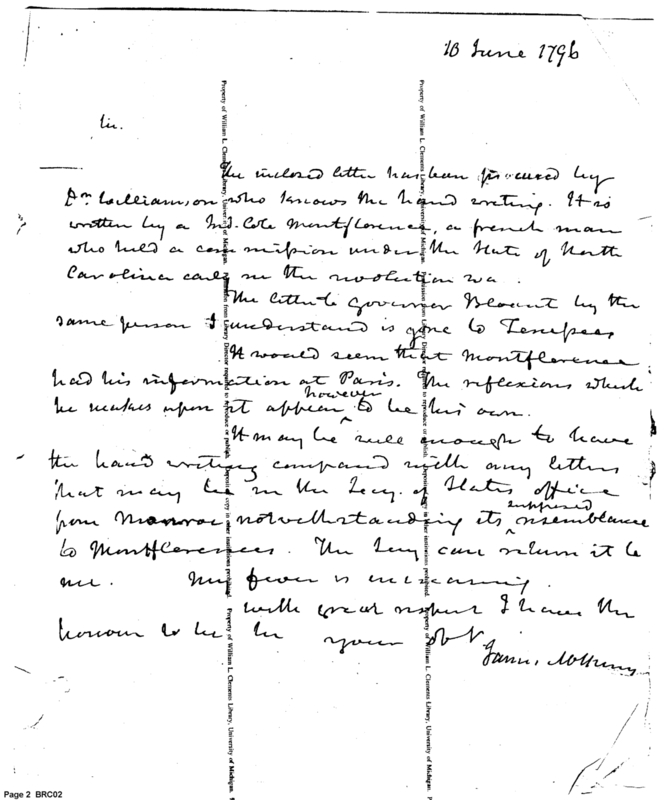 18 June 1796
Sir.
The inclosed letter has been procured by
Dr. Williamson who knows the hand writing. It is
written by a Mr. Cole Montflorence, a french man
who held a commission under the State of North
Carolina early in the revolution
The letter to Governor Blount by the
same person I understand is gone to Tenessee
It would seem that Montflorence
had his information at Paris. The reflexions which
he makes upon it appear however to be his own.
It may be well enough to have
the hand writing compared with any letters
that may be in the Secy. of States office
from Monroe notwithstanding its supposed resemblance
to Montflorences. The Secy can return it to
me. My fever is increasing.
with great respect I have the
honour to be Sir your obt
James McHenry
Property of William L. Clements Library, University of Michigan.
Property of William L. Clements Library, University of Michigan.
Page 2 BRC02